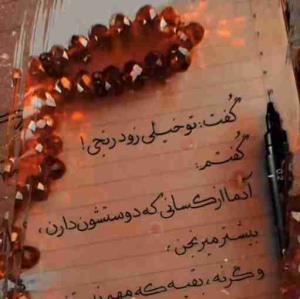 گفت: تو خیلی زود رنجی!
گفتم:
آدما از کسانی که دوستشون دارن،
بیشتر میرنجن،
وگرنه، بقیه که